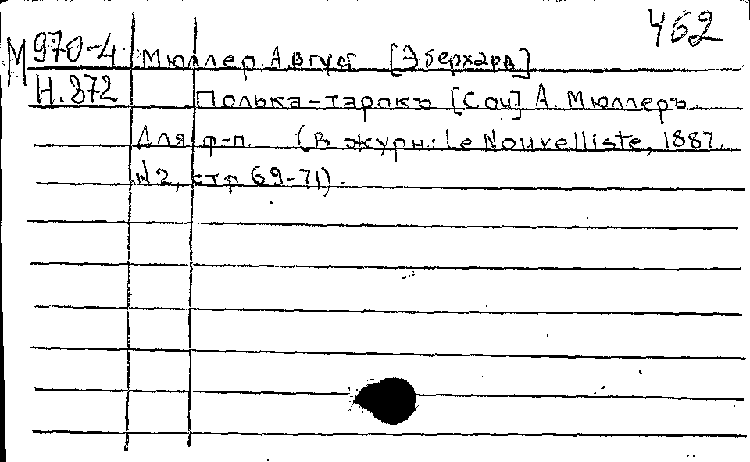 462
М 970-4 Мюллер Август [Эберхард]
Н.872 Полька-таракъ [Соч] А. Мюллеръ
Для ф-п. (В журн: Le Nouvelliste, 1887.
N 2, стр 69-71).